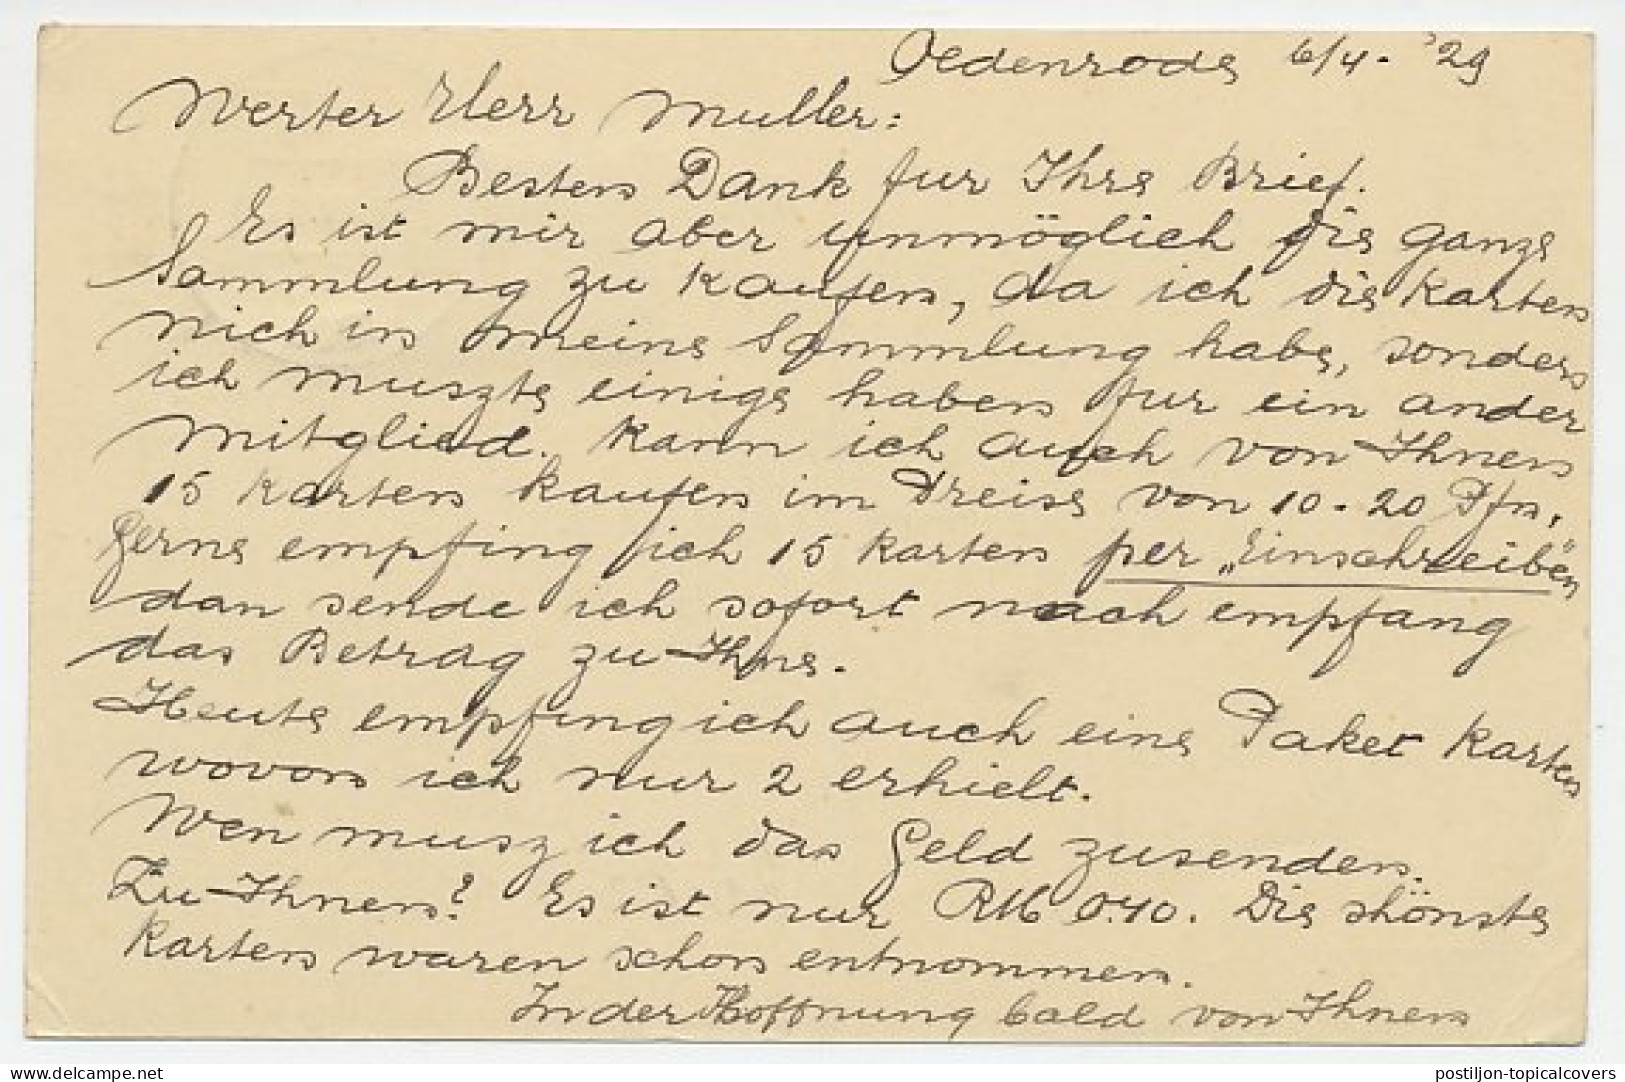 Oedenrode 6/4 - '29
Werter Herr Muller:
Besten Dank fur Ihre Brief.
Es ist mir aber unmöglich die ganze
Sammlung zu kaufen, da ich die Karten
nich in meine Sammlung habe, sonders
ich muszte einige haben fur ein ander
Mitglied. Kann ich auch von Ihnen
15 Karten kaufen im Preise von 10 - 20 Pfn,
Gerne empfing ich 15 Karten per „Einschreiben"
dan sende ich sofort nach empfang
das Betrag zu Ihne.
Heute empfing ich auch eine Paket Karten
wovon ich nur 2 erhielt.
Wen musz ich das Geld zusenden.
Zu Ihnen? Es ist nur RM 0.40. Die shönste
Karten waren schon entnommen.
In der Hoffnung bald von Ihnen
delcampe.net
postiljon-topicalcovers